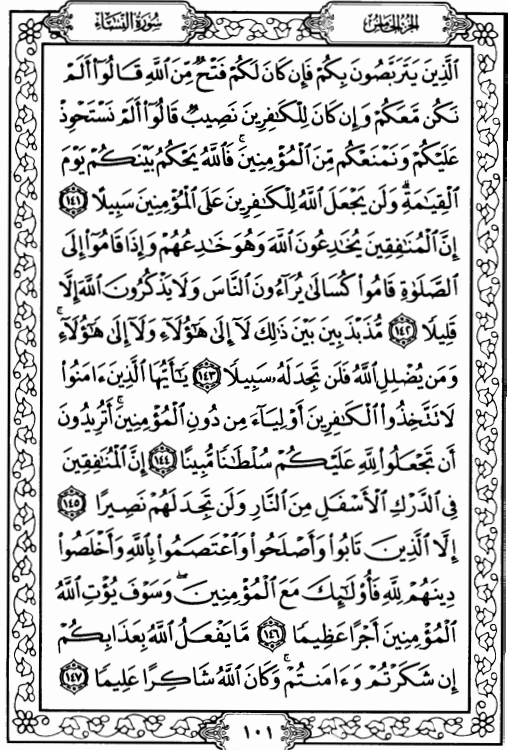 سُورَةُ النِّسَاءِ
الجُزْءُ الخَامِسُ
ٱلَّذِينَ يَتَرَبَّصُونَ بِكُمْ فَإِن كَانَ لَكُمْ فَتْحٌ مِّنَ ٱللَّهِ قَالُوٓا۟ أَلَمْ
نَكُن مَّعَكُمْ وَإِن كَانَ لِلْكَـٰفِرِينَ نَصِيبٌ قَالُوٓا۟ أَلَمْ نَسْتَحْوِذْ
عَلَيْكُمْ وَنَمْنَعْكُم مِّنَ ٱلْمُؤْمِنِينَ ۚ فَٱللَّهُ يَحْكُمُ بَيْنَكُمْ يَوْمَ
ٱلْقِيَـٰمَةِ ۗ وَلَن يَجْعَلَ ٱللَّهُ لِلْكَـٰفِرِينَ عَلَى ٱلْمُؤْمِنِينَ سَبِيلًا ١٤١
إِنَّ ٱلْمُنَـٰفِقِينَ يُخَـٰدِعُونَ ٱللَّهَ وَهُوَ خَـٰدِعُهُمْ وَإِذَا قَامُوٓا۟ إِلَى
ٱلصَّلَوٰةِ قَامُوا۟ كُسَالَىٰ يُرَآءُونَ ٱلنَّاسَ وَلَا يَذْكُرُونَ ٱللَّهَ إِلَّا
قَلِيلًا ١٤٢ مُّذَبْذَبِينَ بَيْنَ ذَٰلِكَ لَآ إِلَىٰ هَـٰٓؤُلَآءِ وَلَآ إِلَىٰ هَـٰٓؤُلَآءِ ۚ
وَمَن يُضْلِلِ ٱللَّهُ فَلَن تَجِدَ لَهُۥ سَبِيلًا ١٤٣ يَـٰٓأَيُّهَا ٱلَّذِينَ ءَامَنُوا۟
لَا تَتَّخِذُوا۟ ٱلْكَـٰفِرِينَ أَوْلِيَآءَ مِن دُونِ ٱلْمُؤْمِنِينَ ۚ أَتُرِيدُونَ
أَن تَجْعَلُوا۟ لِلَّهِ عَلَيْكُمْ سُلْطَـٰنًا مُّبِينًا ١٤٤ إِنَّ ٱلْمُنَـٰفِقِينَ
فِى ٱلدَّرْكِ ٱلْأَسْفَلِ مِنَ ٱلنَّارِ وَلَن تَجِدَ لَهُمْ نَصِيرًا ١٤٥
إِلَّا ٱلَّذِينَ تَابُوا۟ وَأَصْلَحُوا۟ وَٱعْتَصَمُوا۟ بِٱللَّهِ وَأَخْلَصُوا۟
دِينَهُمْ لِلَّهِ فَأُو۟لَـٰٓئِكَ مَعَ ٱلْمُؤْمِنِينَ ۖ وَسَوْفَ يُؤْتِ ٱللَّهُ
ٱلْمُؤْمِنِينَ أَجْرًا عَظِيمًا ١٤٦ مَّا يَفْعَلُ ٱللَّهُ بِعَذَابِكُمْ
إِن شَكَرْتُمْ وَءَامَنتُمْ ۚ وَكَانَ ٱللَّهُ شَاكِرًا عَلِيمًا ١٤٧
١٠١